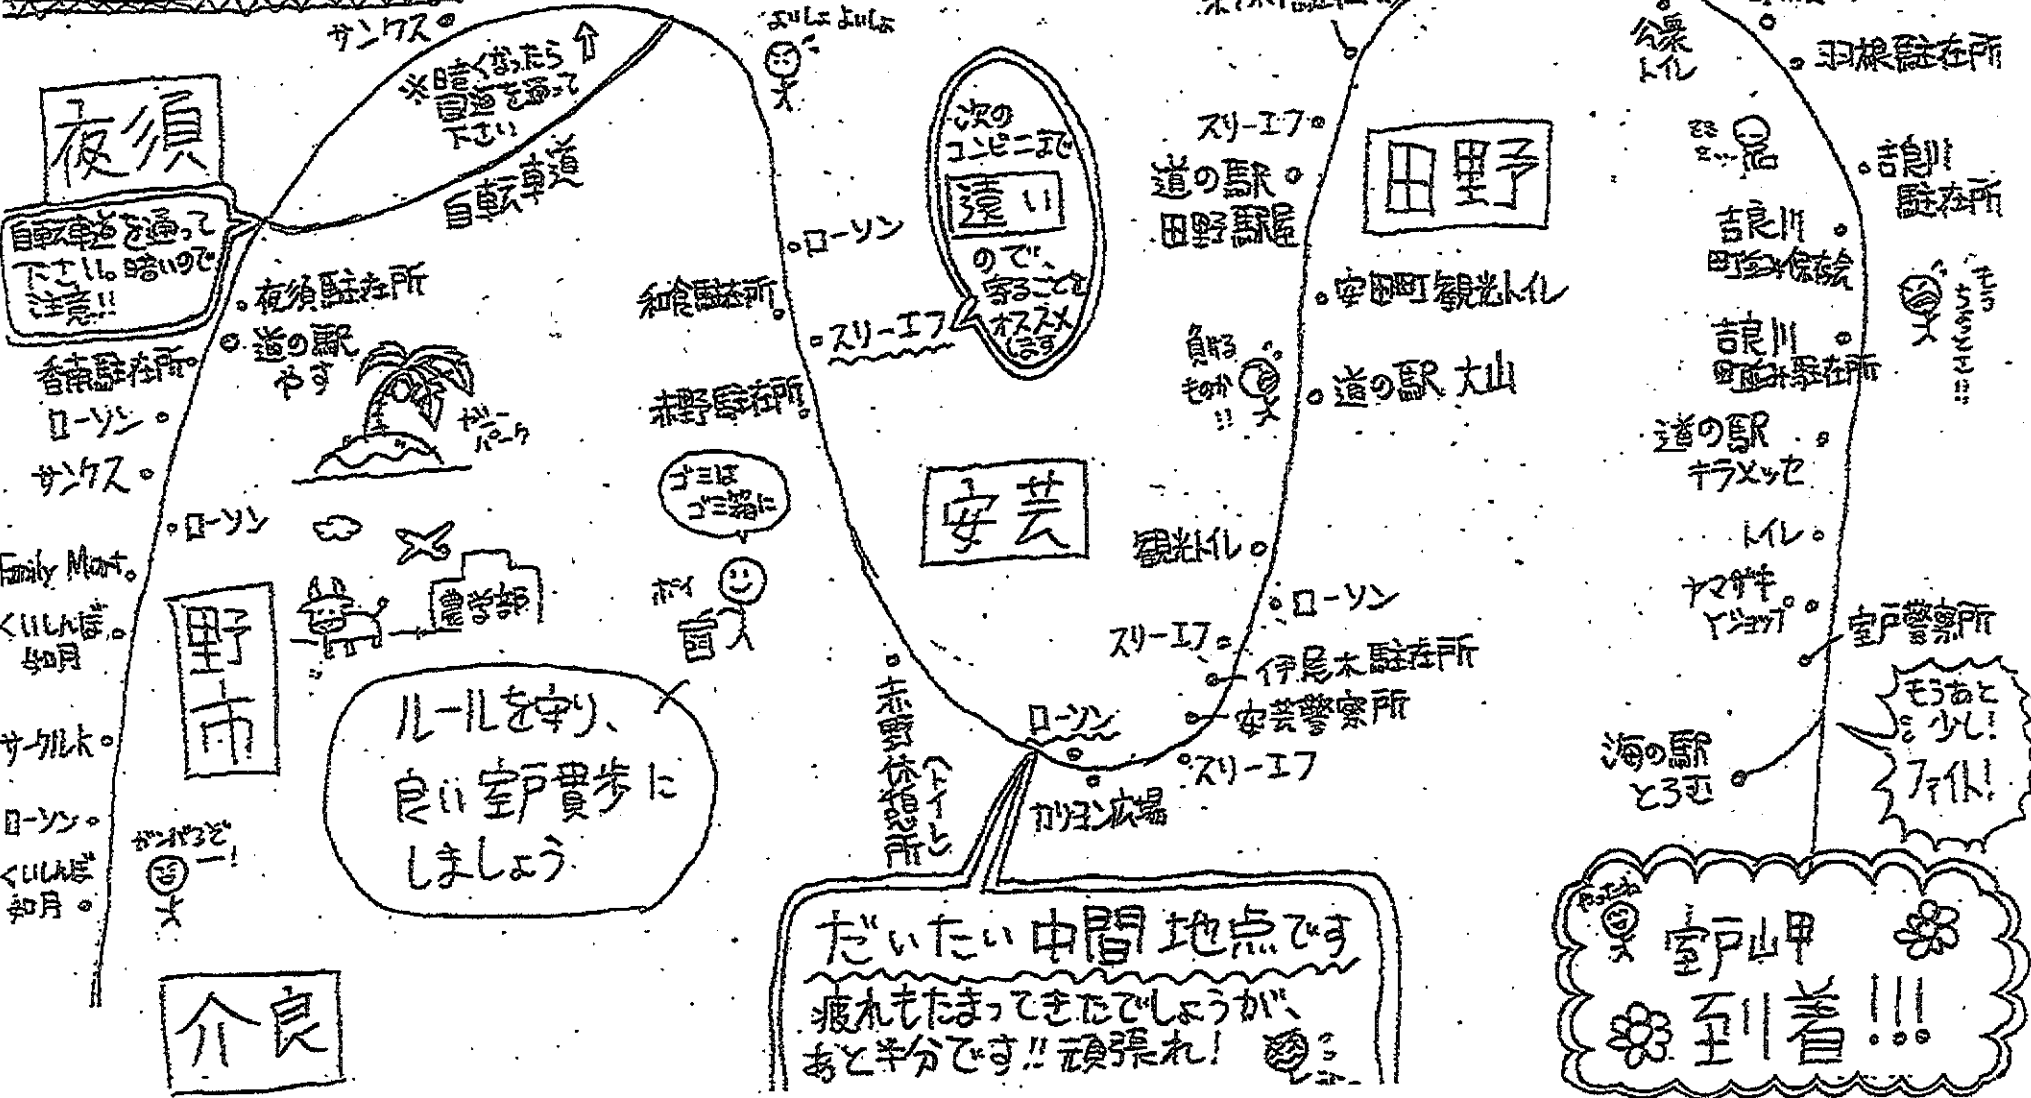 サンクス
※暗くなったら
自道を通って
下さい
自転車道
夜須
自転車道を通って
下さい。暗いので
注意!!
夜須駐在所
道の駅
やす
香南駐在所
ローソン
サンクス
ローソン
ヤシー
パーク
Family Mart
くいしんぼ
如月
野市
農学部
サークルK
ローソン
くいしんぼ
如月
ガンバるぞ
ー!
介良
ルールを守り、
良い室戸貫歩に
しましょう
よいしょよいしょ
ローソン
和食駐在所
スリーエフ
赤野駐在所
ゴミは
ゴミ箱に
ポイ
赤野休憩所
(トイレ)
次の
コンビニまで
遠い
ので、
寄ることを
オススメ
します
安芸
ローソン
カリヨン広場
だいたい中間地点です
疲れもたまってきたでしょうが、
あと半分です!!頑張れ!
スリーエフ
道の駅
田野駅屋
田野
安田町観光トイレ
負ける
ものか
!!
道の駅 大山
観光トイレ
ローソン
スリーエフ
伊尾木駐在所
安芸警察所
スリーエフ
公衆
トイレ
羽根駐在所
吉良川
駐在所
吉良川
町並み保存会
吉良川
町並み駐在所
もう
ちょっと!!
道の駅
キラメッセ
トイレ
ヤマザキ
Yショップ
室戸警察所
もうあと
少し!
ファイト!
海の駅
とろむ
室戸岬
到着!!!